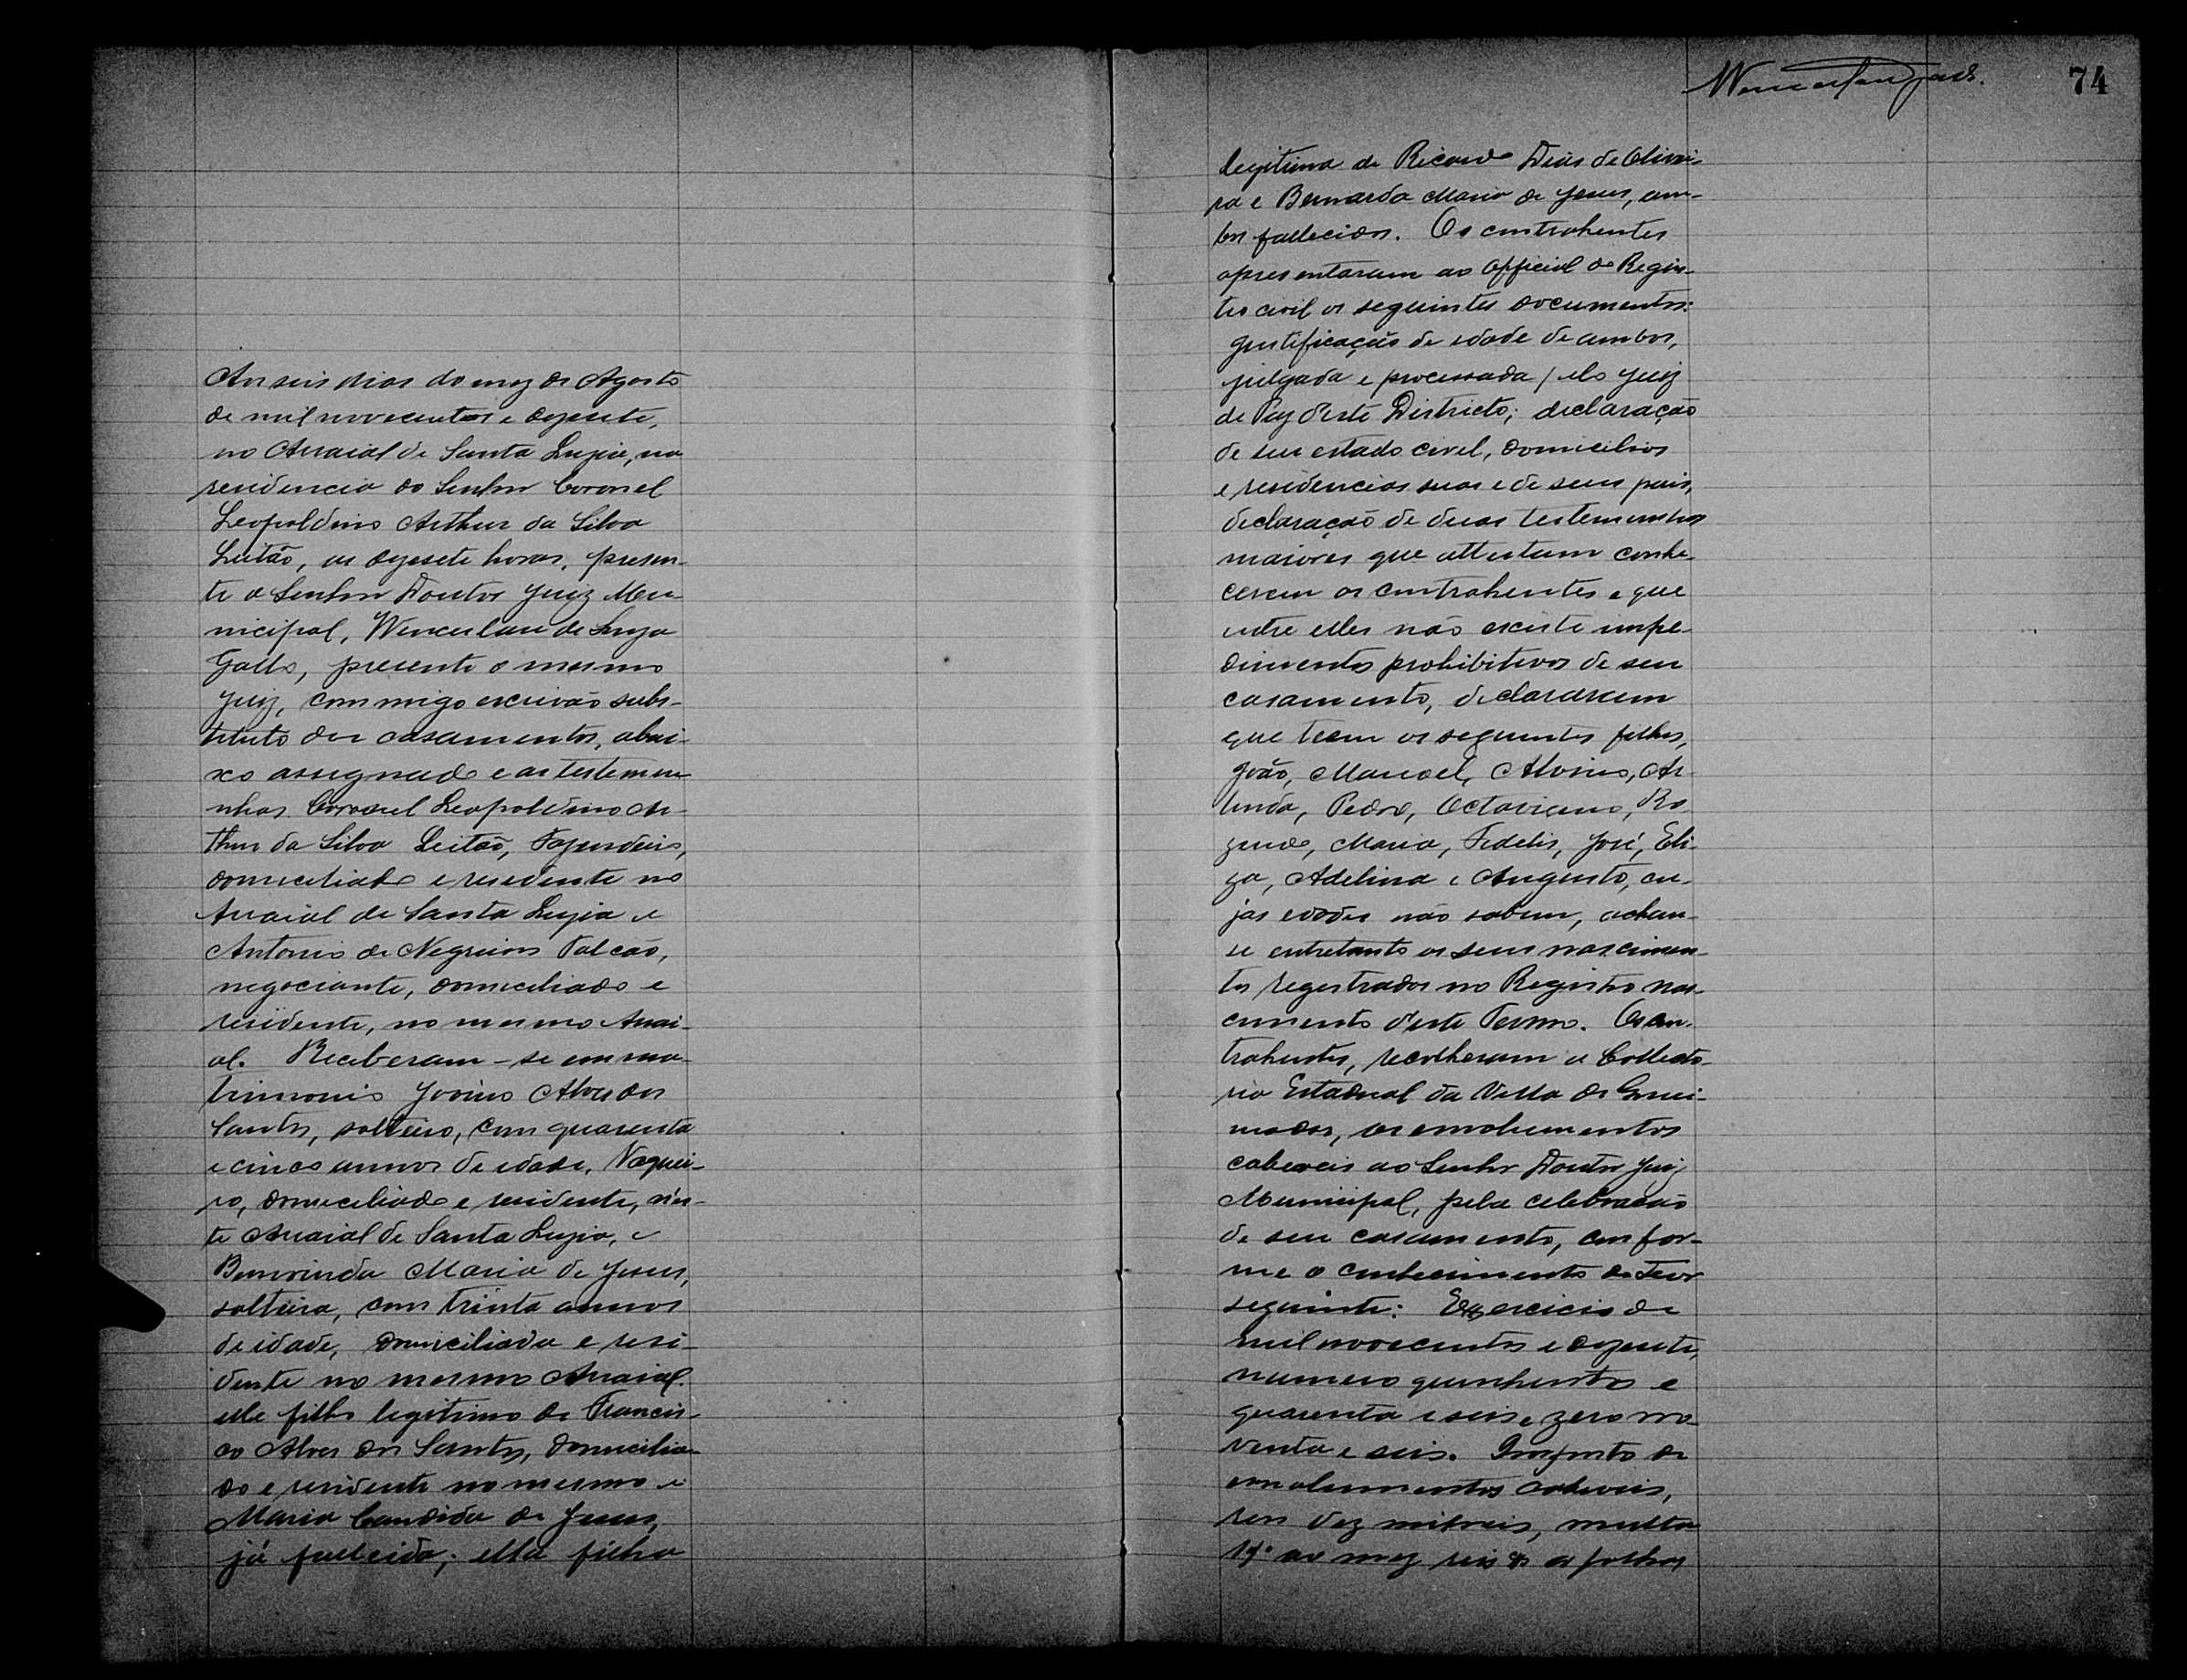 Aos seis dias do mez de Agosto
de mil novecentos e dezesete,
no Arraial de Santa Luzia, na
residencia do Senhor Coronel
Leopoldino Arthur da Silva
Leitão, as dezesete horas, presen-
te o Senhor Doutor Juiz Mu-
nicipal, Wenceslau de Souza
Gallo, presente o mesmo
Juiz, commigo escrivão subs-
tituto dos casamentos, abai-
xo assignado e as testemu
nhas Coronel Leopoldino Ar-
thur da Silva Leitão, Fazendeiro,
domiciliado e residente no
Arraial de Santa Luzia e
Antonio de Negreiros Falcão,
negociante, domiciliado e
residente, no mesmo Arrai-
al. Receberam-se em ma-
trimonio Jovino Alves dos
Santos, solteiro, com quarenta
e cinco annos de idade, Vaquei-
ro, domiciliado e residente, n'es-
te Arraial de Santa Luzia, e
Bemvinda Maria de Jesus,
solteira, com trinta annos
de idade, domiciliada e resi-
dente no mesmo Arraial.
elle filho legitimo de Francis-
co Alves dos Santos, domicilia-
do e residente no mesmo e
Maria Candida de Jesus,
já fallecida; ella filha
74
legitima de Ricardo Dias de Olivei-
ra e Bernarda Maria de Jesus, am-
bos fallecidos. Os contrahentes
apresentaram ao Official do Regis-
tro civil os seguintes documentos:
justificação de edade de ambos,
julgada e processada pelo Juiz
de Paz d'este Districto; declaração
de seu estado civel, domicilios
e residencias suas e de seus pais,
declaração de duas testemunhas
maiores que attestam conhe-
cerem os contrahentes e que
entre elles não existe impe-
dimentos prohibitivos de seu
casamento, declararam
que teem os seguintes filhos,
João, Manoel, Alvino, Ar-
linda, Pedro, Octaviano, Ro
zendo, Maria, Fidelis, José, Eli-
za, Adelina e Augusto, cu-
jas edades não sabem, acham-
se entretanto os seus nascimen-
tos registrados no Registro nas-
cimento d'este Termo. Os con-
trahentes, recolheram a Collecto-
ria Estadual da Villa de Quei-
madas, os emolumentos
cabeveis ao Senhor Doutor Juiz
Municipal, pela celebração
de seu casamento, confor-
me o conhecimento do teor
seguinte: Exercicio de
mil novecentos e dezesete,
numero quinhentos e
quarenta e seis, zero no-
venta e seis. Imposto de
emolumentos cabeveis,
reis dez milreis, multa
ao mez reis as folhas